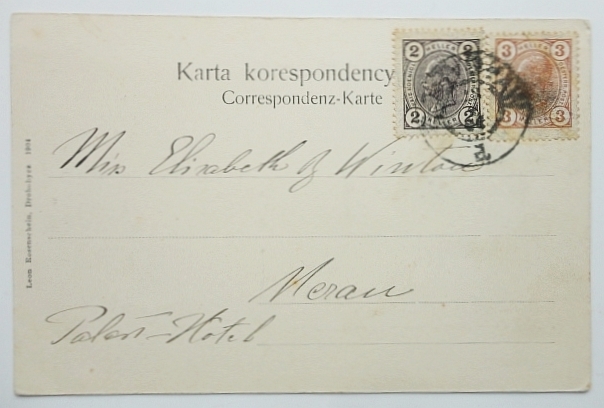 Karta korespondency
Correspondenz-Karte
2 HELLER 2
2 HELLER 2
3 HELLER 3
3 HELLER 3
Miss Elisabeth of Winton
Meran
Palast-Hotel
Leon Rosenschein, Drohobycz 1904